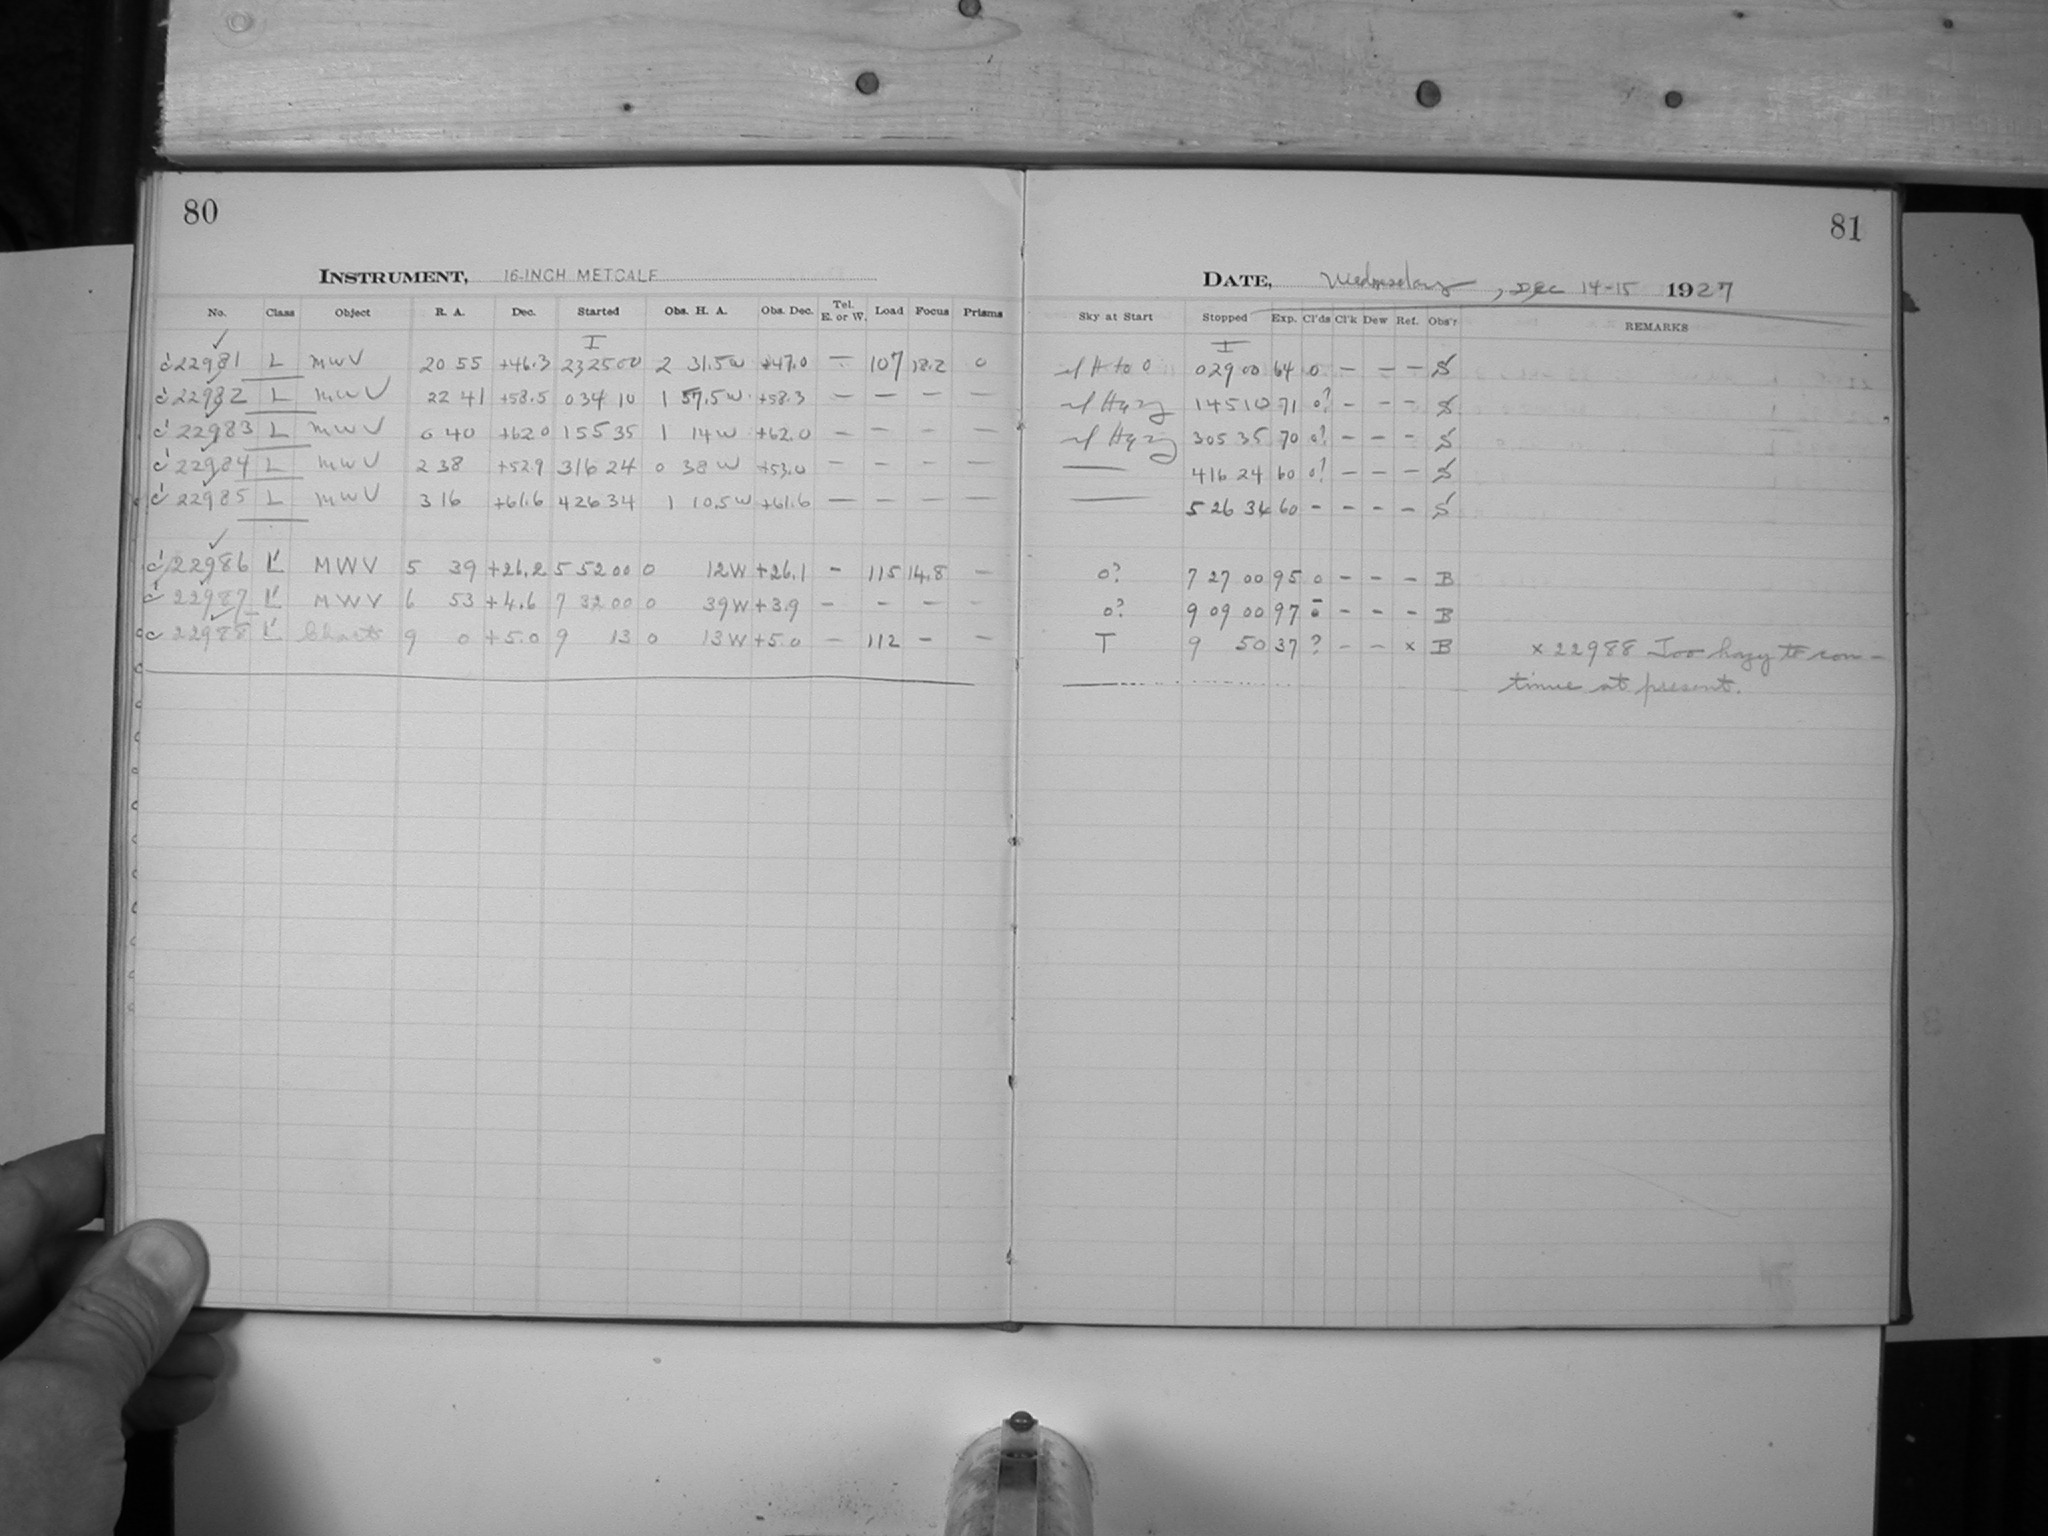 80
INSTRUMENT, 16-INCH METCALF
No. Class Object R. A. Dec. Started Obs. H. A. Obs. Dec. Tel. E. or W. Load Focus Prisms
I
c' 22981 L MWV 20 55 +46.3 23 25 00 2 31.5 W +47.0 — 107 18.2 0
c' 22982 L MWV 22 41 +58.5 0 34 10 1 57.5 W +58.3 — — — —
c' 22983 L MWV 0 40 +62.0 1 55 35 1 14 W +62.0 — — — —
c' 22984 L MWV 2 38 +52.9 3 16 24 0 38 W +53.0 — — — —
c' 22985 L MWV 3 16 +61.6 4 26 34 1 10.5 W +61.6 — — — —
c' 22986 L' MWV 5 39 +26.2 5 52 00 0 12 W +26.1 - 115 14.8 —
c' 22987 L' MWV 6 53 +4.6 7 32 00 0 39 W +3.9 - - - -
c 22988 L' Charts 9 0 +5.0 9 13 0 13 W +5.0 — 112 - —
81
DATE, Wednesday, Dec 14-15 1927
Sky at Start Stopped Exp. Cl'ds Cl'k Dew Ref. Obs'r REMARKS
I
H to 0 0 29 00 64 0 — — — S
Hazy 1 45 10 71 0? - - - S
Hazy 3 05 35 70 0? - - - S
— 4 16 24 60 0? — — - S
— 5 26 34 60 - - - - S
0? 7 27 00 95 0 - - - B
0? 9 09 00 97 0 - - - B
T 9 50 37 ? - - x B x 22988 Too hazy to con-
tinue at present.